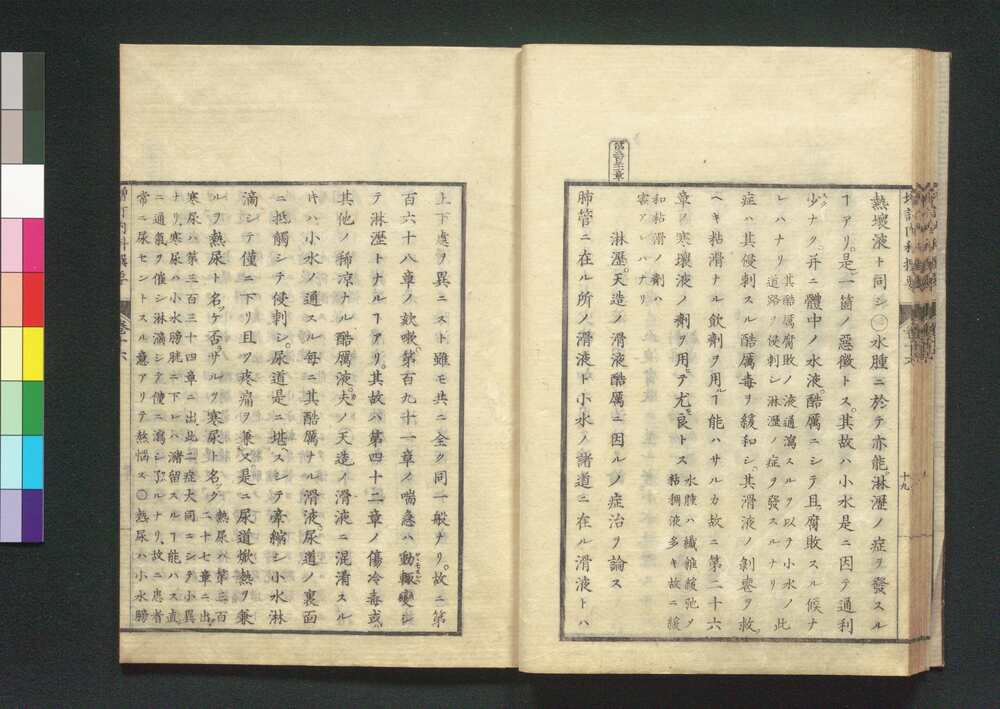 熱壞液ト同シ○水腫ニ於テ亦能淋瀝ノ症ヲ發スル
ヿアリ。是一箇ノ惡徴トス。其故ハ小水是ニ因テ通利
少ナク。并ニ體中ノ水液。酷厲ニシテ且腐敗スル候ナ
レハナリ
其酷厲腐敗ノ液通瀉スルヲ以ヲ小水ノ此
道路ヲ侵刺シ淋瀝ノ症ヲ發スルナリ
症ハ其侵刺スル酷厲毒ヲ緩和シ。其滑液ノ剝
ヲ救
ヘキ粘滑ナル飲劑ヲ用ルヿ能ハサルカ故ニ第二十六
章ノ寒壞液ノ劑ヲ用テ尤良トス
水腫ハ纖維緩弛ノ
粘稠液多キ故ニ緩
和粘滑ノ劑ハ
害アレハナリ
第百三章
淋瀝。天造ノ滑液酷厲ニ因ルノ症治ヲ論ス
肺管ニ在ル所ノ滑液ト小水ノ諸道ニ在ル滑液トハ
十九
上下處ヲ異ニスト雖モ共ニ全ク同一般ナリ。故ニ第
百六十八章ノ欬嗽。第百九十一章ノ喘急ハ動輒變シ
テ淋瀝トナルヿアリ。其故ハ第四十二章ノ傷冷毒或
其他ノ稀凉ナル酷厲液。夫ノ天造ノ滑液ニ混淆スル
キハ小水ノ通スル毎ニ其酷厲ナル滑液。尿道ノ裏面
ニ抵觸シテ侵刺シ。尿道是ニ堪スシテ牽縮シ小水淋
滴シテ僅ニ下リ且ツ疼痛ヲ兼又是ニ尿道焮熱ヲ兼
ルヲ熱尿ト名ケ否サルヲ寒尿ト名ク
二十七章ニ出
熱尿ハ第三百
寒尿ハ第三百三十四章ニ出此二症大同ニシテ小異
ナリ寒尿ハ小水膀胱ニ下レハ瀦留スルヿ能ハス直
ニ通氣ヲ催シ淋滴シテ僅ニ瀉シ了ルナリ故ニ患者
常ニ尿セントスル意アリテ熱惱ス○熱尿ハ小水膀
增訂內科撰要
卷十六